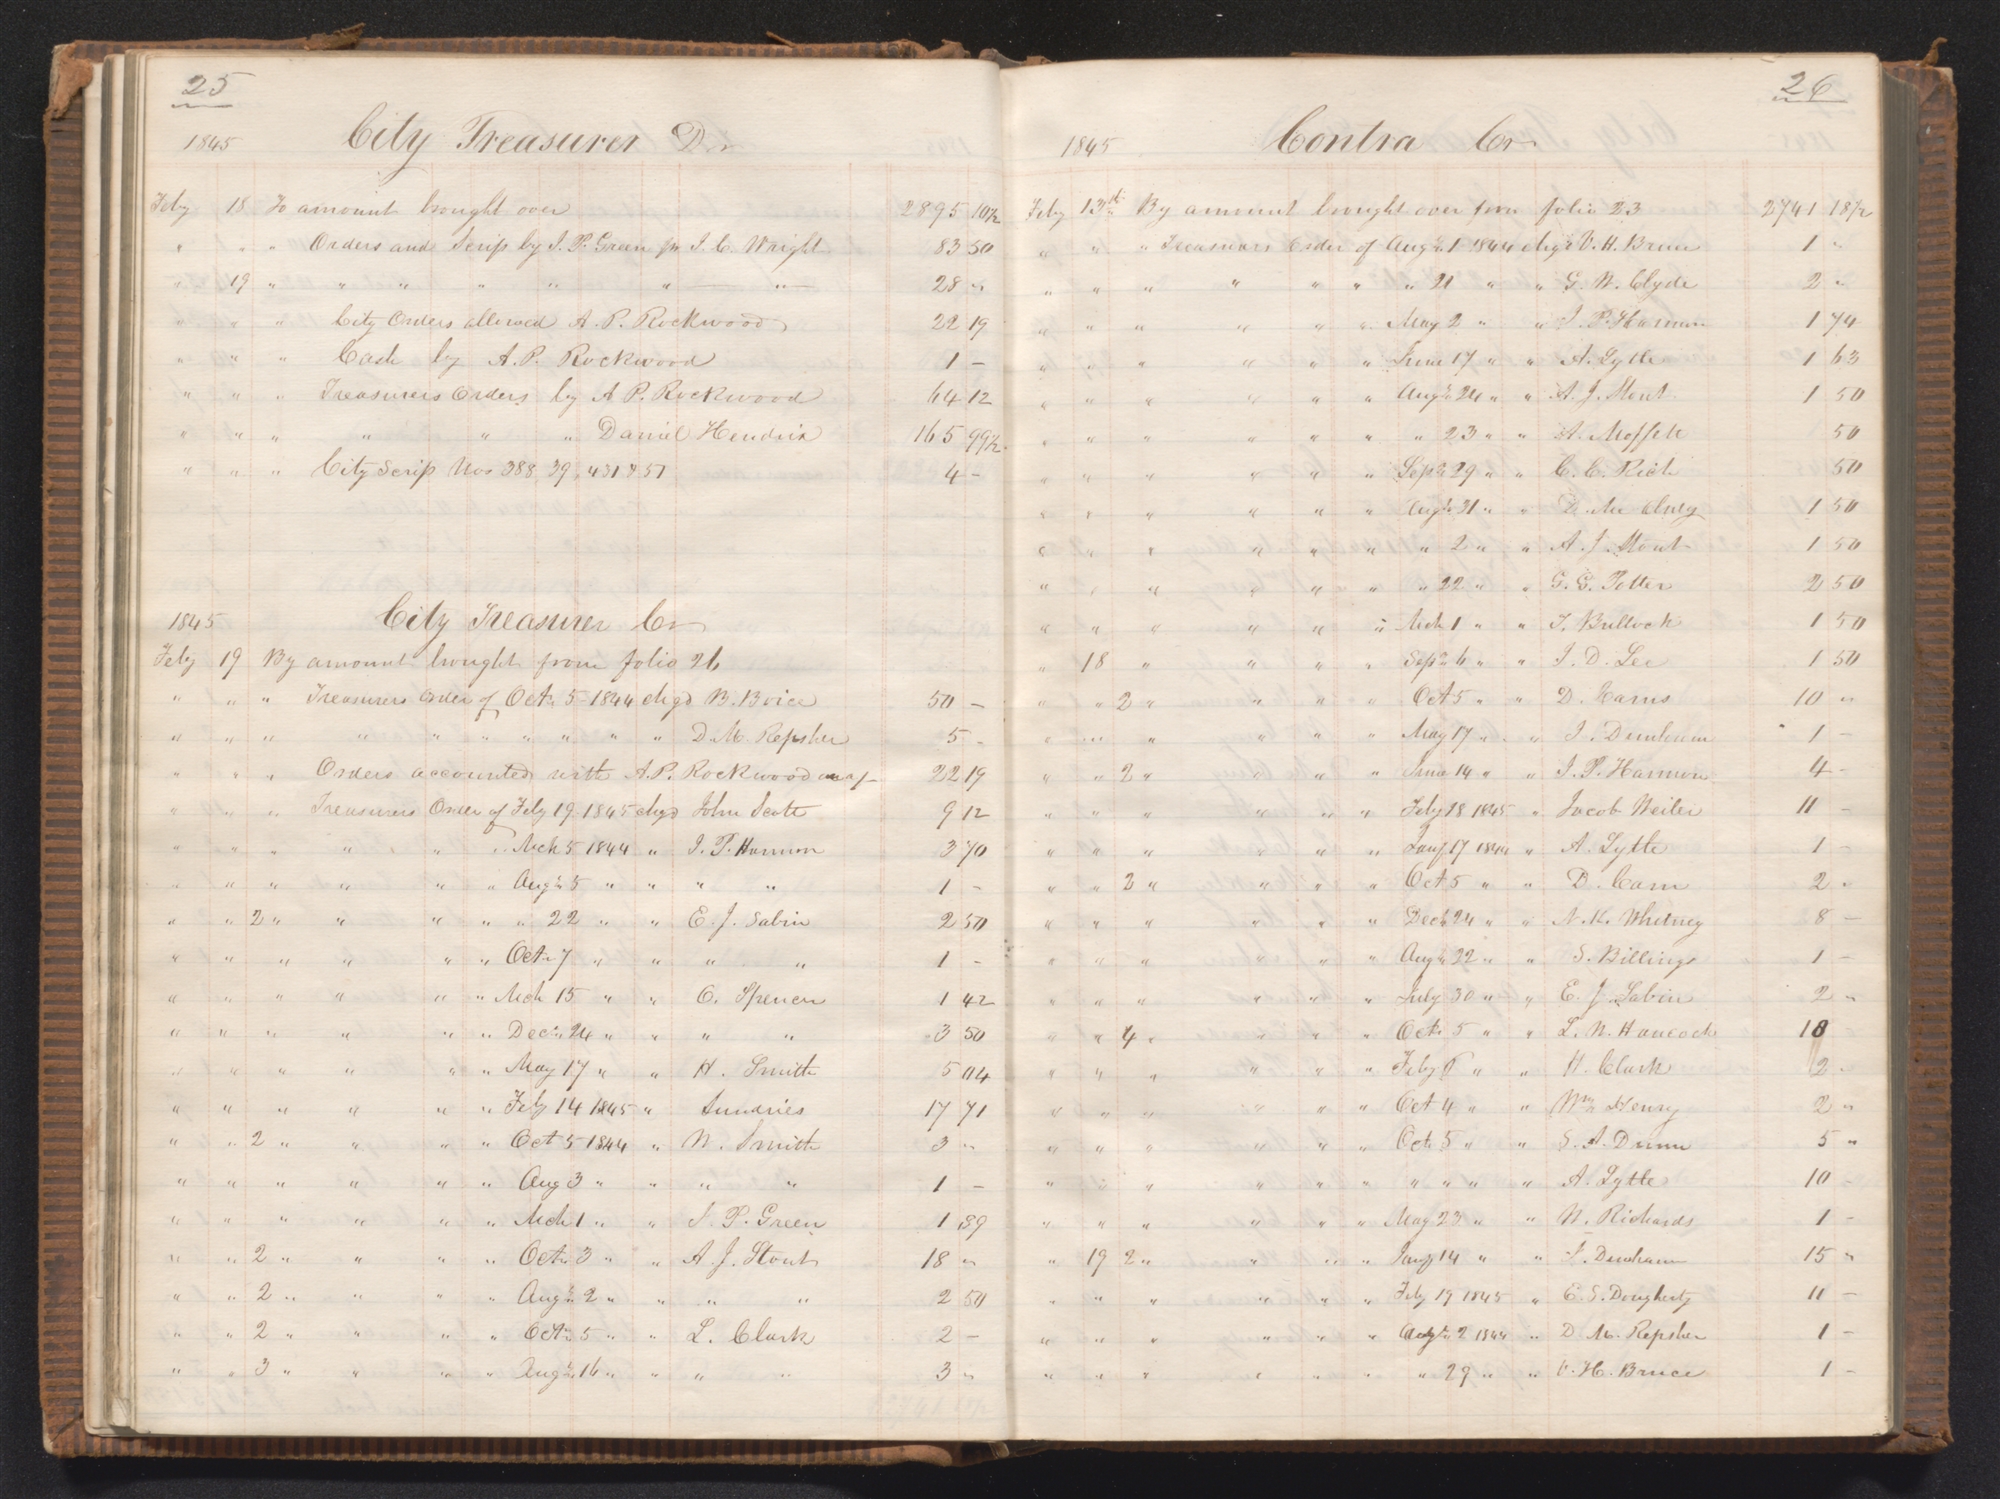 25
1845 City Treasurer Dr
Feby 18 To amount brought over 2895 10½
" " " Orders and Scrip by J. P. Green pr J. C. Wright 83 50
" 19 " " " " " " — " — 28 "
" " " City Orders allowed A. P. Rockwood 22 19
" " " Cash by A. P. Rockwood 1 –
" " " Treasurers Orders by A P. Rockwood 64 12
" " " " " " Daniel Hendrix 165 99½
" " " City Scrip Nos 388, 39, 431 & 51 4 –
1845 City Treasurer Cr
Feby 19 By amount brought from folio 26
" " " Treasurers Order of Octr 5 1844 chgd B. Boice 50 –
" " " " " " " " " " D. M. Repsher 5 –
" " " Orders accounted with A. P. Rockwood 22 19
" " " Treasurers Order of Feby 19 1845 chgd John Scott 9 12
" " " " " " Mch 5 1844 " J. P. Harmon 3 70
" " " " " " Augt 5 " " " " 1 –
" " 2 " " " " " 22 " " E. J. Sabin 2 50
" " " " " " Octr 7 " " " " 1 –
" " " " " " Mch 15 " " O. Spencer 1 42
" " " " " " Decr 24 " " " " 3 50
" " " " " " May 17 " " H. Smith 5 04
" " " " " " Feby 14 1845 " Sundries 17 71
" " 2 " " " " Oct 5 1844 " W. Smith 3 "
" " " " " " Aug 3 " " " " 1 –
" " " " " " Mch 1 " " J. P. Green 1 59
" " 2 " " " " Octr 3 " " A. J. Stout 18 "
" " 2 " " " " Augt 2 " " " " 2 50
" " 2 " " " " Octr 5 " " L. Clark 2 –
" " 3 " " " " Augt 16 " " " " 3 "
26
1845 Contra Cr
Feby 13th By amount brought over from folio 23 2741 18½
" " " Treasurers Order of Augt 1 1844 chgd V. H. Bruce 1 "
" " " " " " " 21 " " G. W. Clyde 2 "
" " " " " " May 2 " " J. P. Harmon 1 74
" " " " " " June 17 " " A. Lytle 1 63
" " " " " " Augt 24 " " A. J. Stout 1 50
" " " " " " " 23 " " A. Moffett 50
" " " " " " Sept 29 " " C. C. Rich 50
" " " " " " Augt 31 " " D. 1 50
" " " " " " " 2 " " A. J. Stout 1 50
" " " " " " " 22 " " G. G. Potter 2 50
" " " " " " Mch 1 " " T. Bullock 1 50
" 18 " " " " Sept 6 " " J. D. Lee 1 50
" " 2 " " " " Oct 5 " " D. Carns 10 "
" " " " " " May 17 " " J. Dunham 1 –
" " 2 " " " " June 14 " " J. P. Harmon 4 –
" " " " " " Feby 18 1845 " Jacob Weiler 11 –
" " " " " " Jany 17 1844 " A. Lytle 1 –
" " 2 " " " " Oct 5 " " D. Carn 2 "
" " " " " " Decr 24 " " N. K. Whitney 8 –
" " " " " " Augt 22 " " S. Billings 1 –
" " " " " " July 30 " " E. J. Sabin 2 "
" " 4 " " " " Octr 5 " " L. N. Hancock 18 –
" " " " " " Feby " " H. Clark 2 "
" " " " " " Oct 4 " " Wm Henry 2 "
" " " " " " Oct 5 " " S. A. Dunn 5 "
" " " " " " " " " " A. Lytle 10 –
" " " " " " May 23 " " W. Richards 1 –
" 19 2 " " " " Jany 14 " " J. Dunham 15 "
" " " " " " Feby 19 1845 " E. S. Dougherty 11 –
" " " " " " Augt 2 1844 " D M. Repsher 1 –
" " " " " " " 29 " " V. H. Bruce 1 –